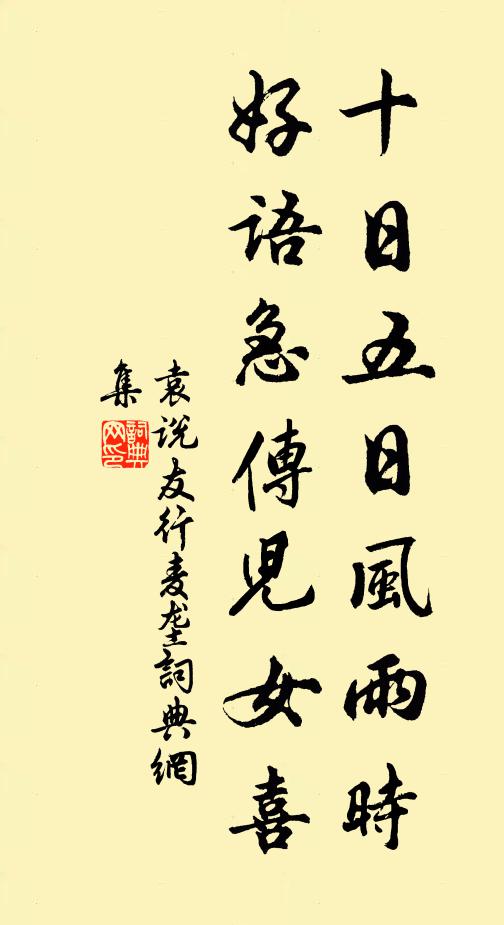 十日五日風雨時
好語急傳兒女喜
袁説友行麦垄詞典網
集
詞典网印